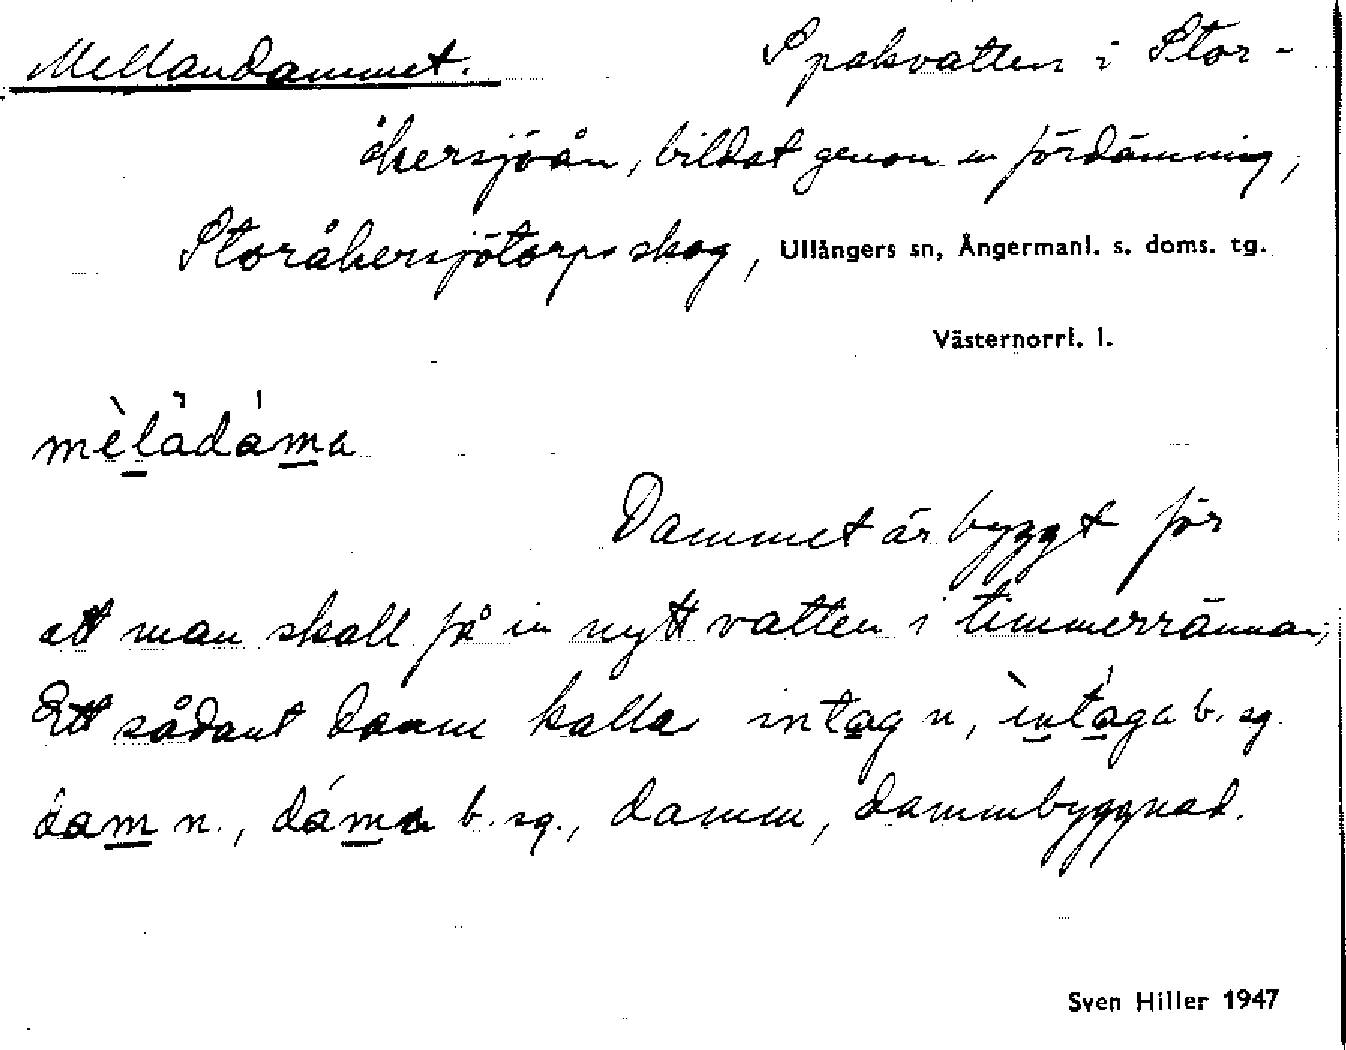 Mellandammet. Spakvatten i Stor-
åkersjöån, bildat genom en fördämning,
Storåkersjötorps skog, Ullångers sn, Ångermanl. s. doms. tg.
Västernorrl. l.
mèlådáma
Dammet är byggt för
att man skall få in nytt vatten i timmerrännan,
Ett sådant damm kallas intag n, ìntága b. sg.
dam n., dáma b. sg., damm, dammbyggnad.
Sven Hiller 1947